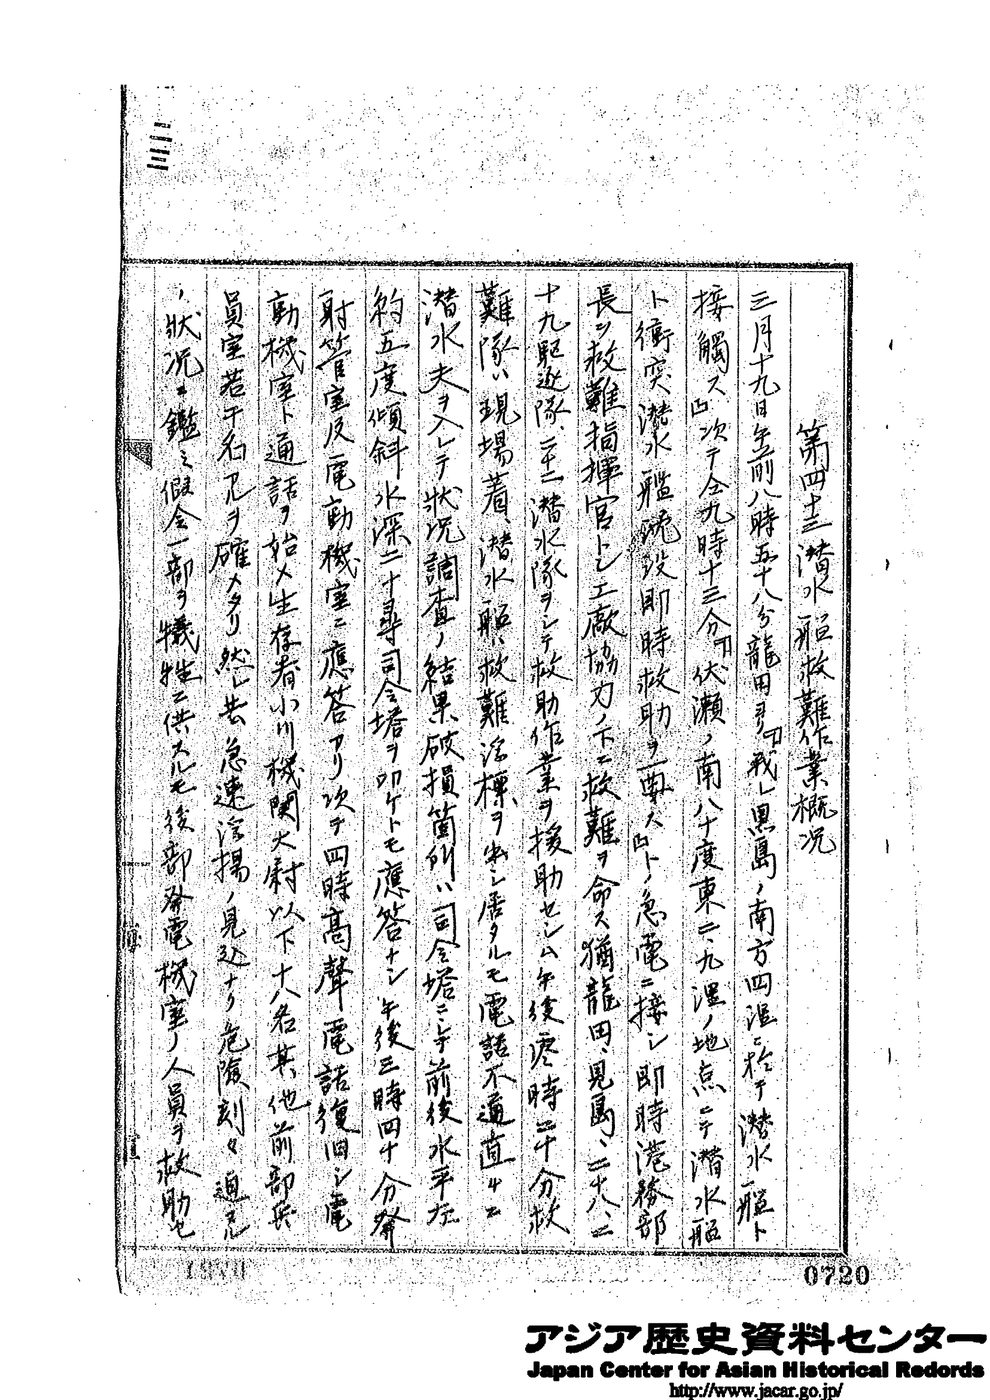 二三
第四十三潜水艦救難作業概況
三月十九日午前八時五十八分龍田ヨリ「我レ黒島ノ南方四浬ニ於テ潜水艦ト
接觸ス」次テ仝九時十三分「伏瀬ノ南八十度東二、九浬ノ地点ニテ潜水艦
ト衝突潜水艦沈没即時救助ヲ要ス」トノ急電ニ接シ即時港務部
長ヲ救難指揮官トシ工廠協力ノ下ニ救難ヲ命ス猶龍田、見島、二十八、二
十九駆逐隊、二十二潜水隊ヲシテ救助作業ヲ援助セシム午後零時二十分救
難隊ハ現場着、潜水艦ハ救難浮標ヲ出シ居タルモ電話不通直ニ
潜水夫ヲ入レテ状況調査ノ結果破損箇所ハ司令塔ニシテ前後水平左
約五度傾斜水深二十尋司令塔ヲ叩ケトモ應答ナシ午後三時四十分発
射管室及電動機室ニ應答アリ次テ四時高聲電話復旧シ電
動機室ト通話ヲ始メ生存者小川機関大尉以下十八名其他前部兵
員室若干名アルヲ確メタリ然レ共急速浮揚ノ見込ナク危險刻々迫マル
ノ状況ニ鑑ミ假令一部ヲ犠牲ニ供スルモ後部発電機室ノ人員ヲ救助セ
0720
アジア歴史資料センター
Japan Center for Asian Historical Records
http://www.jacar.go.jp/